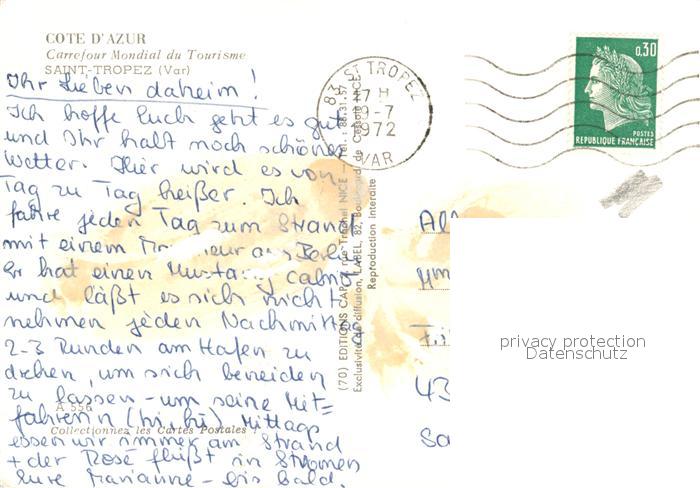 COTE D'AZUR
Carrefour Mondial du Tourisme
SAINT-TROPEZ (Var)
Ihr Lieben daheim!
Ich hoffe Euch geht es gut
und Ihr habt noch schönes
Wetter. Hier wird es von
Tag zu Tag heißer. Ich
fahre jeden Tag zum Strand
mit einem aus Berlin
Er hat einen Mustang Cabrio
und läßt es sich nicht
nehmen jeden Nachmittag
2-3 Runden am Hafen zu
drehen, um sich beneiden
zu lassen - um seine Mit=
fahrerin (hi, hi) Mittags
essen wir immer am Strand
+ der Rosé fließt in Strömen
Eure Marianne - bis bald.
A 556
Collectionnez les Cartes Postales !
83 ST TROPEZ
17 H
9-7
1972
VAR
0,30
POSTES
REPUBLIQUE FRANÇAISE
(70) EDITIONS CAP, rue Trachel NICE - Tel.: 88.31.57
Exclusivité de diffusion, LABEL, 82, Boulevard de Cessole NICE
Reproduction interdite
43
privacy protection
Datenschutz